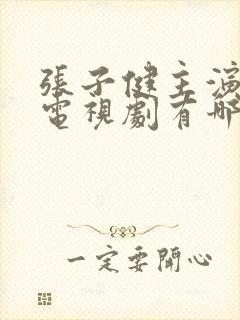 張子健主演
電視劇有哪
一定要開心